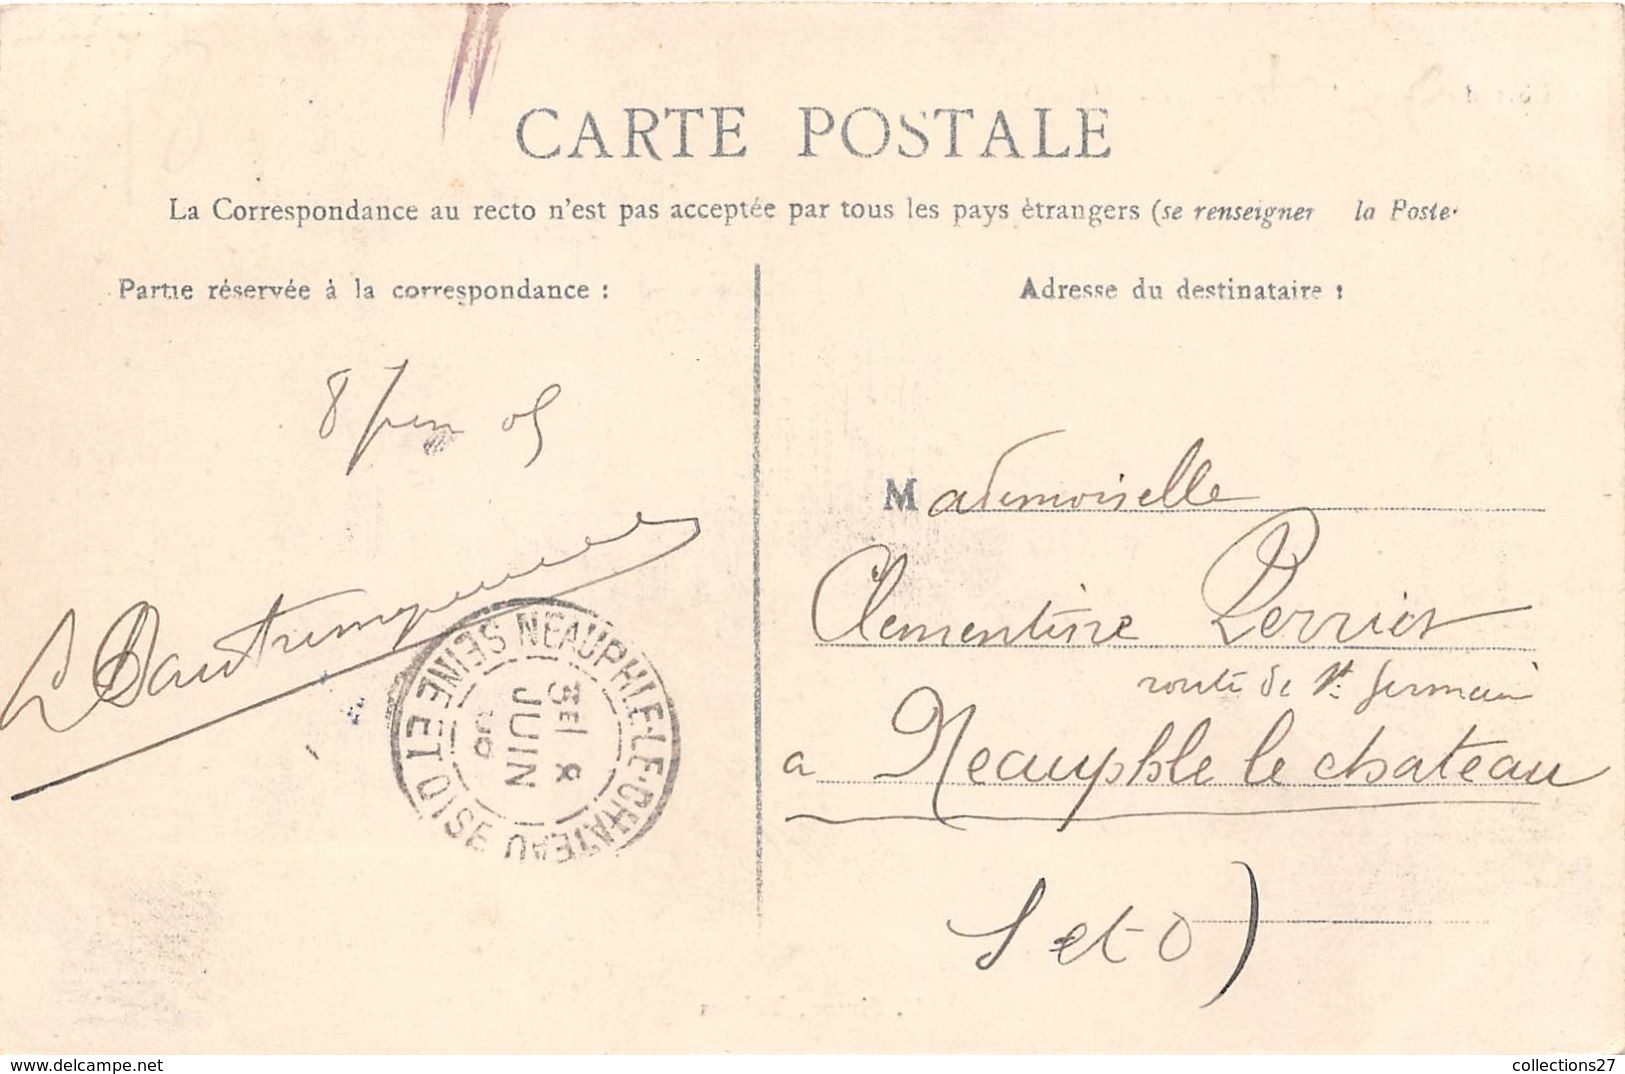 CARTE POSTALE
La Correspondance au recto n'est pas acceptée par tous les pays étrangers (se renseigner la Poste
Partie réservée à la correspondance :
8 juin 05
NEAUPHLE-LE-CHATEAU
SEINE ET OISE
8
JUIN
Adresse du destinataire :
Mademoiselle
Clementine Perrier
route de St Germain
a Neauphle le chateau
S et O)
delcampe.net
collections27